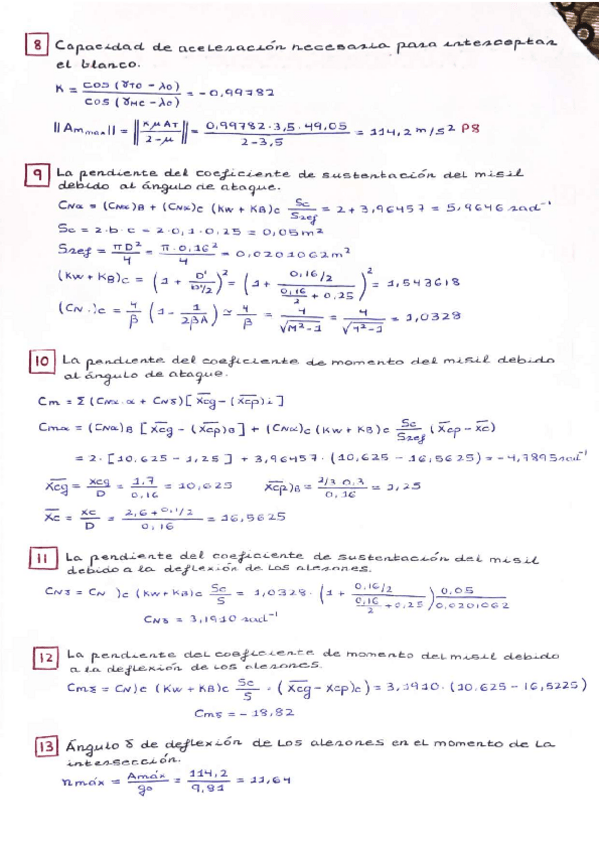 8 Capacidad de aceleración necesaria para interceptar
el blanco.
K = cos (γTO - λ0) / cos (γMC - λ0) = -0,99782
||Ammax|| = ||KμAT / 2-μ|| = 0,99782·3,5·49,05 / 2-3,5 = 114,2 m/s² P8
9 La pendiente del coeficiente de sustentación del misil
debido al ángulo de ataque.
CNα = (CNα)B + (CNα)C (KW + KB)C Sc/Sref = 2 + 3,96457 = 5,9646 rad⁻¹
Sc = 2·b·c = 2·0,1·0,25 = 0,05m²
Sref = πD²/4 = π·0,16²/4 = 0,0201062m²
(KW + KB)C = (1 + D'/D'/2)² = (1 + 0,16/2 / 0,16/2 + 0,25)² = 1,543618
(CN )C = 4/β (1 - 1/2βA) ≃ 4/β = 4/√M²-1 = 4/√4²-1 = 1,0328
10 La pendiente del coeficiente de momento del misil debido
al ángulo de ataque.
Cm = Σ (CNα·α + CNδ) [x̄cg - (x̄cp)i]
Cmα = (CNα)B [x̄cg - (x̄cp)B] + (CNα)C (KW + KB)C Sc/Sref (x̄cp - x̄c)
= 2·[10,625 - 1,25] + 3,96457·(10,625 - 16,5625) = -4,7895 rad⁻¹
x̄cg = xcg/D = 1,7/0,16 = 10,625 x̄cp)B = 2/3 0,3 / 0,16 = 1,25
x̄c = xc/D = 2,6+0,1/2 / 0,16 = 16,5625
11 La pendiente del coeficiente de sustentación del misil
debido a la deflexión de los alerones.
CNδ = CN )C (KW+KB)C Sc/S = 1,0328·(1 + 0,16/2 / 0,16/2 + 0,25) 0,05/0,0201062
CNδ = 3,1910 rad⁻¹
12 La pendiente del coeficiente de momento del misil debido
a la deflexión de los alerones.
Cmδ = CN)C (KW + KB)C Sc/S · (x̄cg - x̄cp)C) = 3,1910·(10.625 - 16,5225)
Cmδ = -18,82
13 Ángulo δ de deflexión de los alerones en el momento de la
intersección.
nmáx = Amáx/g0 = 114,2/9,81 = 11,64